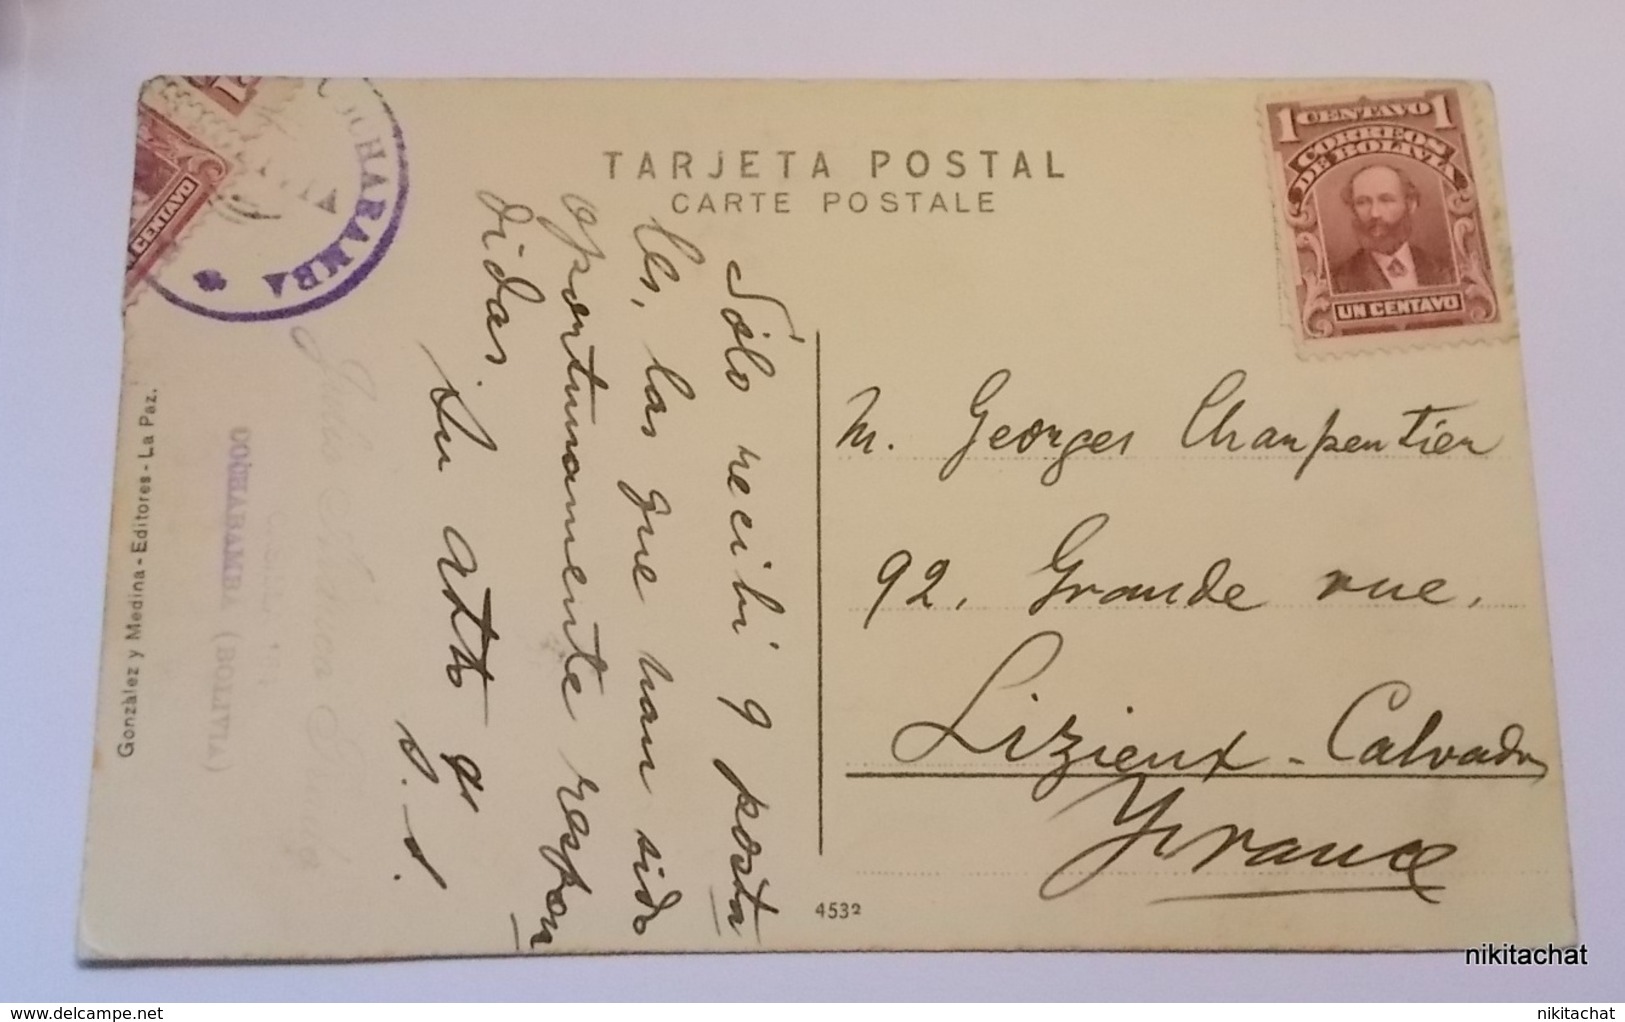 TARJETA POSTAL
CARTE POSTALE
1 CENTAVO 1
CORREOS
DE BOLIVIA
UN CENTAVO
UN CENTAVO
COCHABAMBA
Sólo recibi 9 posta
les, las que han sido
oportunamente respon
didas.
Su atto
S. S.
M. Georges Charpentier
92, Grande rue,
Lizieux - Calvados
France
COCHABAMBA (BOLIVIA)
González y Medina - Editores - La Paz.
4532
nikitachat
www.delcampe.net
nikitachat